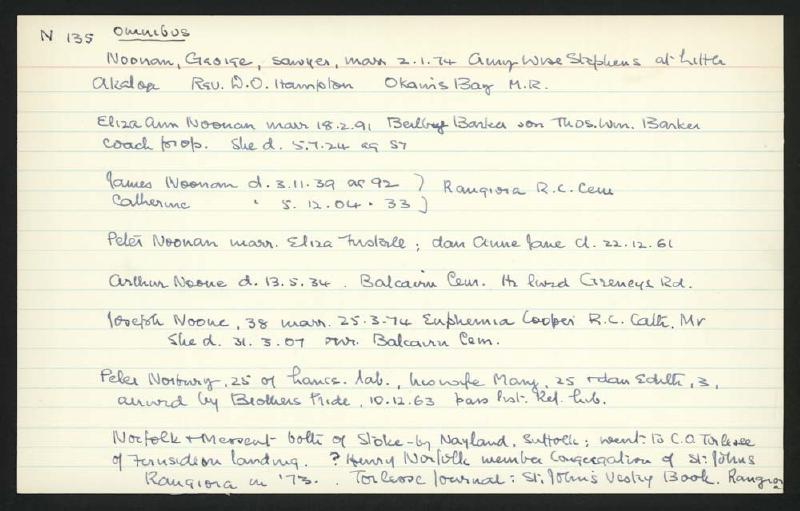 N 135 Omnibus
Noonan, George, sawyer, marr 2.1.74 Amy Wise Stephens at Little
Akaloa Rev. D.O. Hampton Okains Bay M.R.
Eliza Ann Noonan marr 18.2.91 Barker son Thos. Wm. Barker
coach prop. She d. 5.7.24 ag 57
James Noonan d. 3.11.39 ag 92 ) Rangiora R.C. Cem
Catherine " 5.12.04 . 33 )
Peter Noonan marr. Eliza ; dau Anne Jane d. 22.12.61
Arthur Noone d. 13.5.34 . Balcairn Cem. He lived Greneys Rd.
Joseph Noone, 38 marr. 25.3.74 Euphemia Cooper R.C. Cath. Mr
She d. 31.3.07 Balcairn Cem.
Peter Norbury, 25 of Lancs. lab., his wife Mary, 25 + dau Edith, 3,
arrived by Brothers Pride, 10.12.63 pass list. Ref. lib.
Norfolk + Messent both of Stoke-by Nayland, Suffolk; went to C.O. Torlesse
of Fernside on landing. ? Henry Norfolk member Congregation of St. Johns
Rangiora in '73. . Torlesse Journal : St. John's Vestry Book. Rangiora